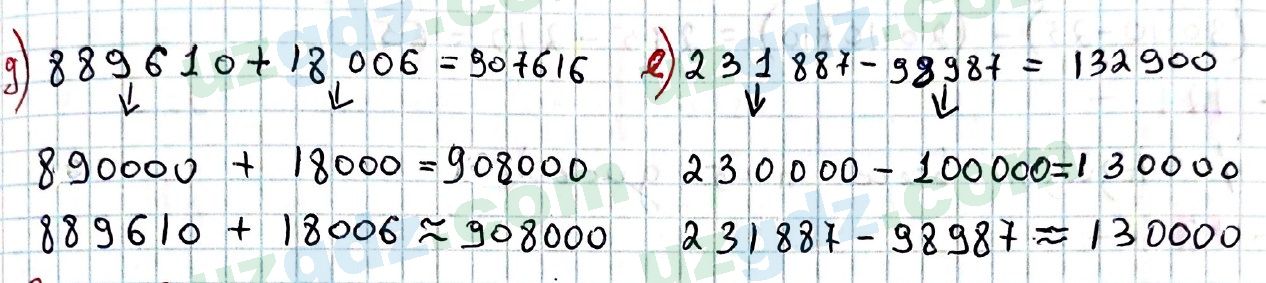 д) 889610 + 18 006 = 907616 е) 231 887 - 98987 = 132900
890000 + 18000 = 908000 230000 - 100000 = 130000
889610 + 18006 ≈ 908000 231887 - 98987 ≈ 130000
uzgdz.com